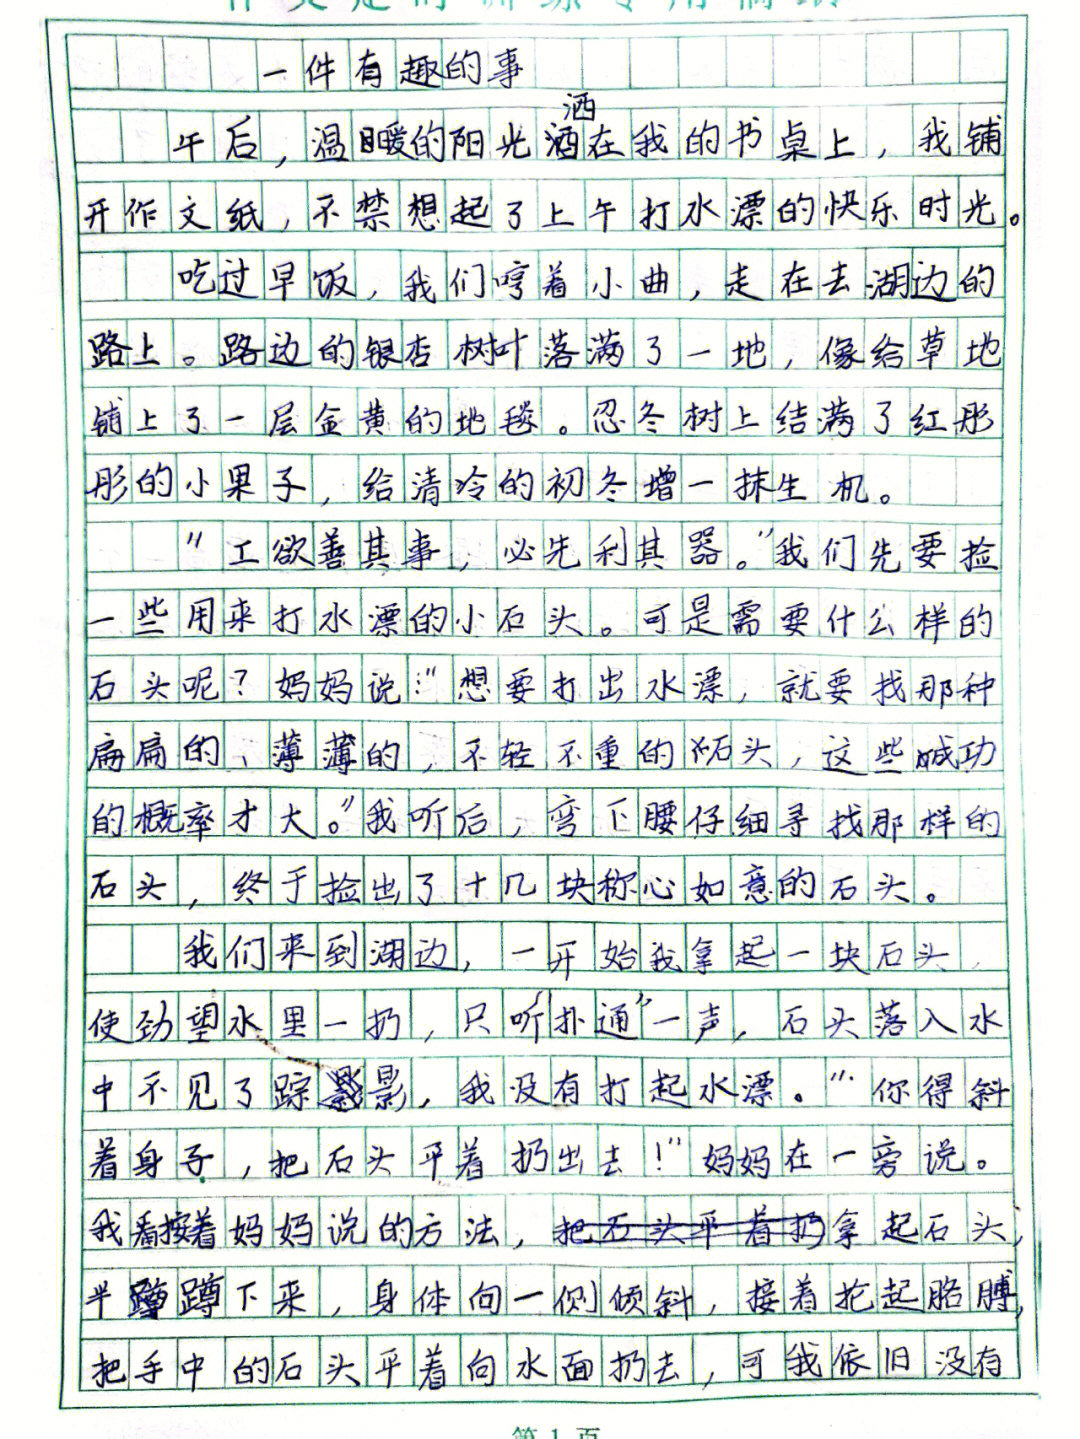 一件有趣的事
洒
午后，温暖的阳光洒在我的书桌上，我铺
开作文纸，不禁想起了上午打水漂的快乐时光。
吃过早饭，我们哼着小曲，走在去湖边的
路上。路边的银杏树叶落满了一地，像给草地
铺上了一层金黄的地毯。忍冬树上结满了红彤
彤的小果子，给清冷的初冬增一抹生机。
“工欲善其事，必先利其器。”我们先要捡
一些用来打水漂的小石头。可是需要什么样的
石头呢？妈妈说：“想要打出水漂，就要找那种
扁扁的、薄薄的，不轻不重的石头，这些成功
的概率才大。”我听后，弯下腰仔细寻找那样的
石头，终于捡出了十几块称心如意的石头。
我们来到湖边，一开始我拿起一块石头，
使劲望水里一扔，只听“扑通”一声，石头落入水
中不见了踪影，我没有打起水漂。“你得斜
着身子，把石头平着扔出去！”妈妈在一旁说。
我按着妈妈说的方法，把石头平着扔拿起石头，
半蹲下来，身体向一侧倾斜，接着抡起胳膊，
把手中的石头平着向水面扔去，可我依旧没有
第1页